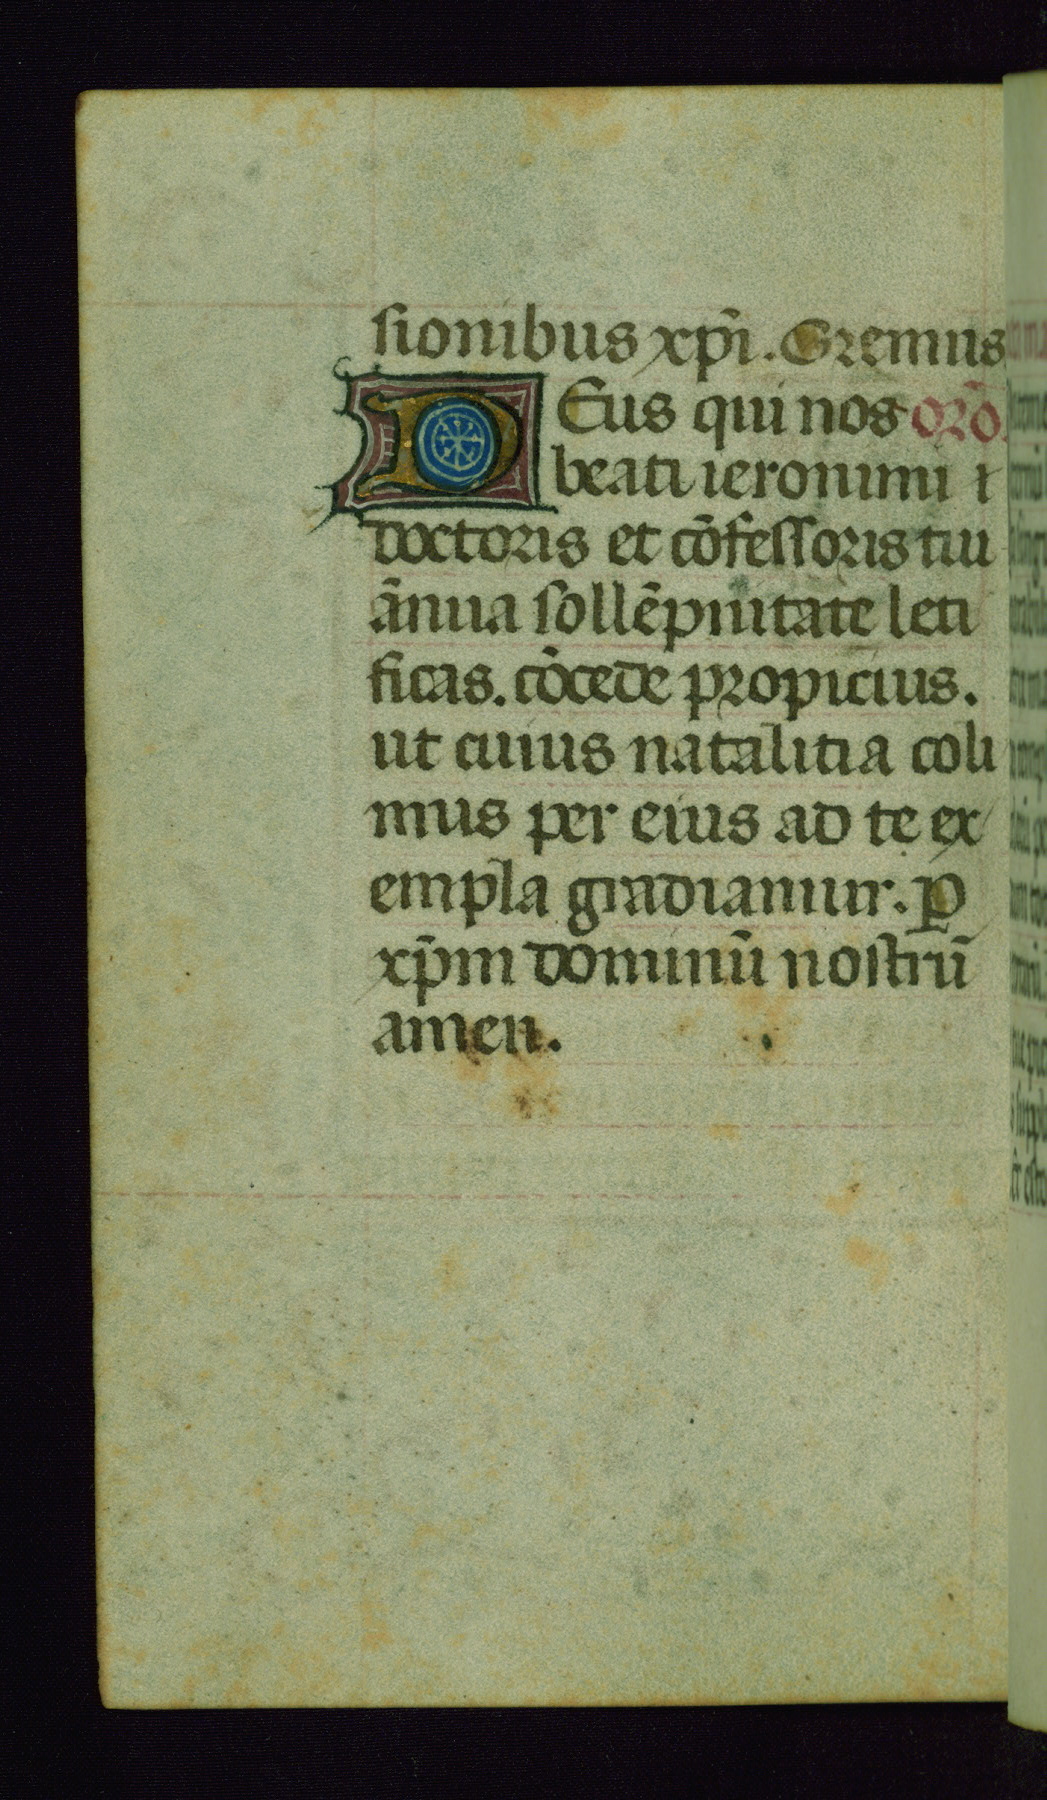 sionibus xp̄i. Oremus
DEus qui nos orō.
beati ieronimi ⁊
doctoris et cōfessoris tui
ānua sollēpnitate leti
ficas. cōcede propicius.
ut cuius natalitia coli
mus per eius ad te ex
empla gradiamur. P
xp̄m dominū nostrū
amen.